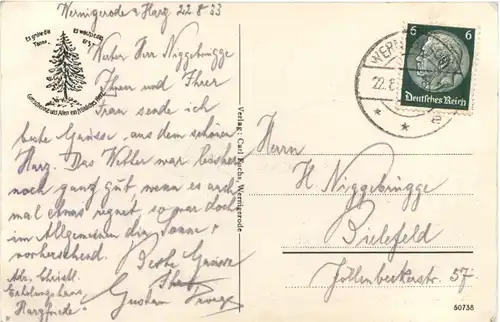 Wernigerode a Harz 22.8.33
Es grüne die Tanne,
Es wachse das Erz!
Gott schenke uns Allen ein fröhliches Herz!
Werter Herr Niggebrügge
Ihnen und Ihrer
Frau sende ich
beste Grüsse aus dem schönen
Harz. Das Wetter war bisher
noch ganz gut, wenn es auch
mal etwas regnet, so war doch
im Allgemeinen die Sonne
vorherrschend.
Beste Grüsse
Gustav
Adr. Christl.
Erholungshaus
"Harzfriede"
Verlag: Carl Fuchs, Wernigerode
6 6
Deutsches Reich
WERN
22.8
Herrn
H Niggebrügge
Bielefeld
Jöllenbeckerstr. 57
60738